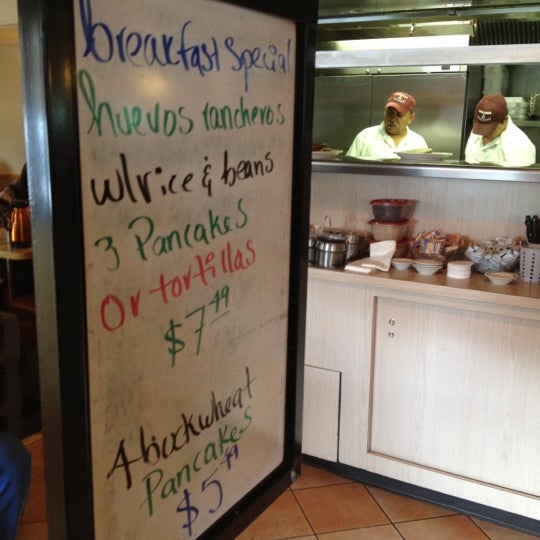 breakfast Special
huevos rancheros
w/rice & beans
3 Pancakes
Or tortillas
$7.49
4 buckwheat
Pancakes
$5.49